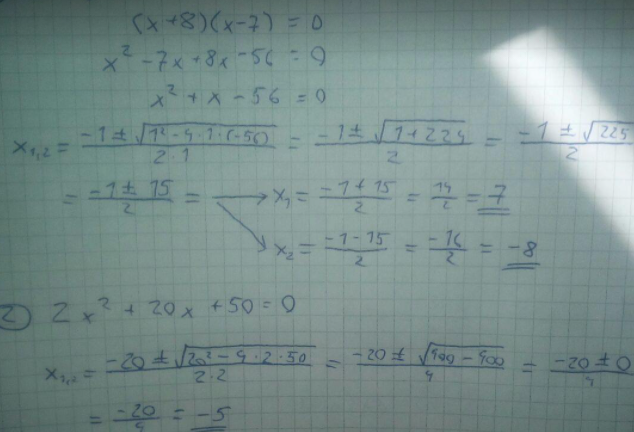 (x+8)(x-7) = 0
x² - 7x + 8x - 56 = 0
x² + x - 56 = 0
x₁,₂ = (-1 ± √(1² - 4·1·(-56))) / (2·1) = (-1 ± √(1+224)) / 2 = (-1 ± √225) / 2
= (-1 ± 15) / 2 = → x₁ = (-1+15) / 2 = 14/2 = 7
↘ x₂ = (-1-15) / 2 = -16/2 = -8
2) 2x² + 20x + 50 = 0
x₁,₂ = (-20 ± √(20² - 4·2·50)) / (2·2) = (-20 ± √(400-400)) / 4 = (-20 ± 0) / 4
= -20/4 = -5